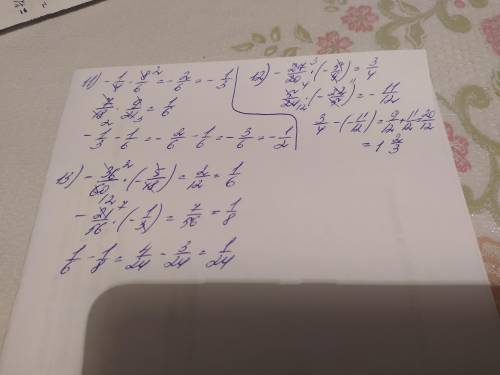 11) -1/4 · 8/6 = -2/6 = -1/3
7/12 · 2/21 = 1/6
-1/3 - 1/6 = -2/6 - 1/6 = -3/6 = -1/2
12) - 27/20 · (-) = 3/4
· (-) = -11/12
3/4 - (-11/12) = 9/12 + 11/12 = 20/12
= 1 2/3
13) - 36/60 · (-5/18) = 2/12 = 1/6
- 21/16 · (-1/3) = 7/56 = 1/8
1/6 - 1/8 = 4/24 - 3/24 = 1/24